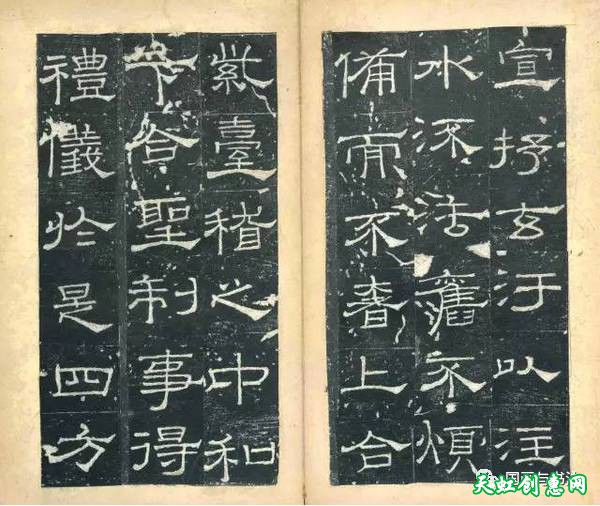 宣抒玄汙以注
水流法舊不煩
備而不奢上合
紫臺稽之中和
下合聖制事得
禮儀於是四方
天虹创惠网